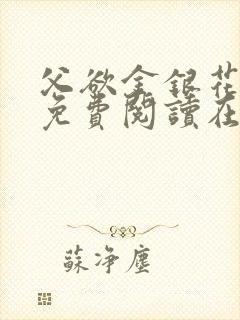 父欲金銀花
免費閱讀在
蘇淨塵